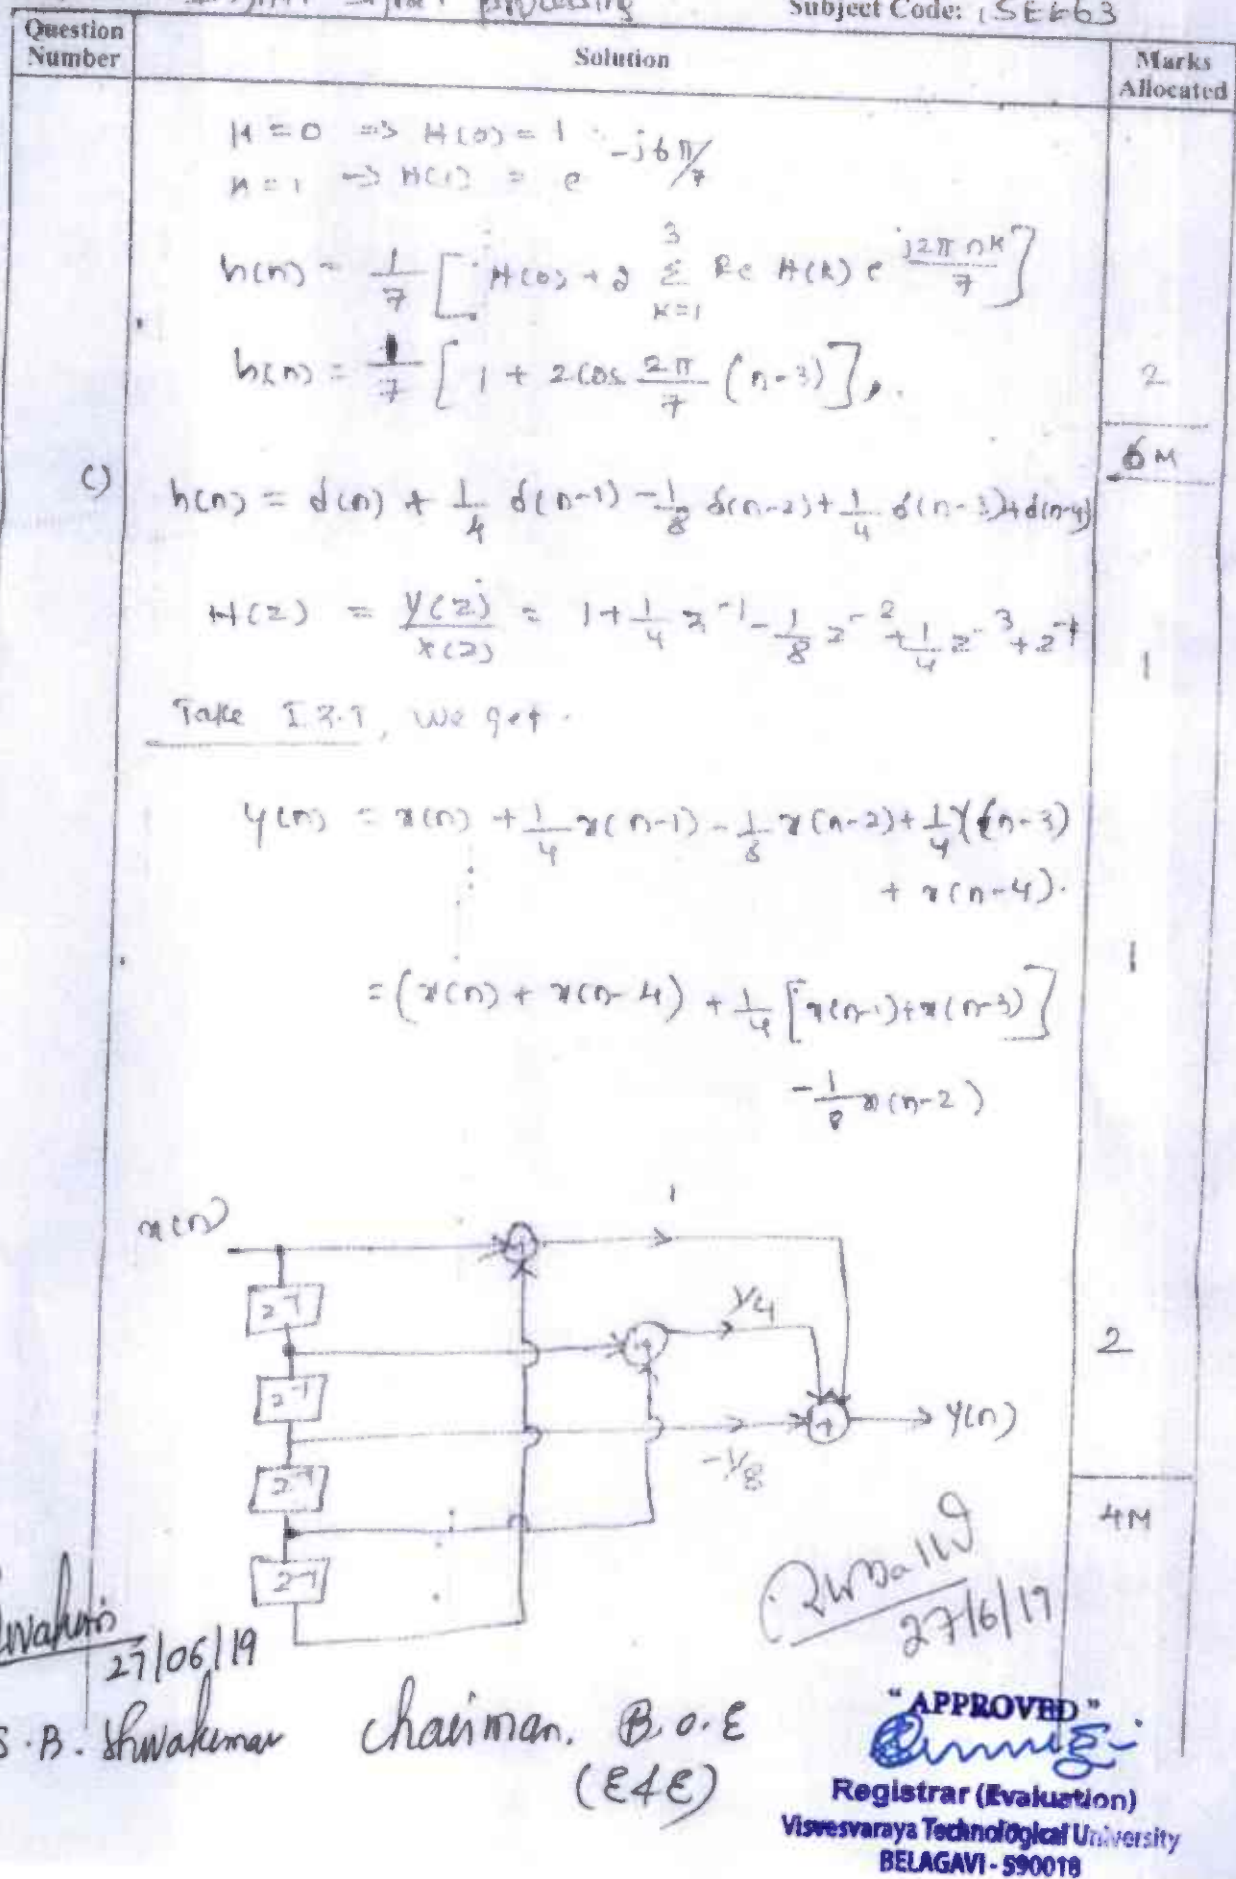 processing Subject Code: 15EE63
Question Number Solution Marks Allocated
K = 0 => H(0) = 1
K = 1 -> H(1) = e^(-j6π/7)
h(n) = 1/7 [ H(0) + 2 Σ_{K=1}^{3} Re H(k) e^(j2πnk/7) ]
h(n) = 1/7 [ 1 + 2 cos 2π/7 (n-3) ],. 2
6M
c) h(n) = δ(n) + 1/4 δ(n-1) - 1/8 δ(n-2) + 1/4 δ(n-3) + δ(n-4)
H(z) = Y(z)/X(z) = 1 + 1/4 z^-1 - 1/8 z^-2 + 1/4 z^-3 + z^-4 1
Take I.Z.T, we get.
y(n) = x(n) + 1/4 x(n-1) - 1/8 x(n-2) + 1/4 x(n-3)
+ x(n-4).
= (x(n) + x(n-4) + 1/4 [x(n-1) + x(n-3)] 1
-1/8 x(n-2)
x(n) + 1
z^-1 + 1/4
z^-1 2
-1/8 + y(n)
z^-1
z^-1
4M
27/6/19
27/06/19
S.B. Shivakumar Chairman. B.O.E
(E&E)
"APPROVED"
Registrar (Evaluation)
Visvesvaraya Technological University
BELAGAVI - 590018